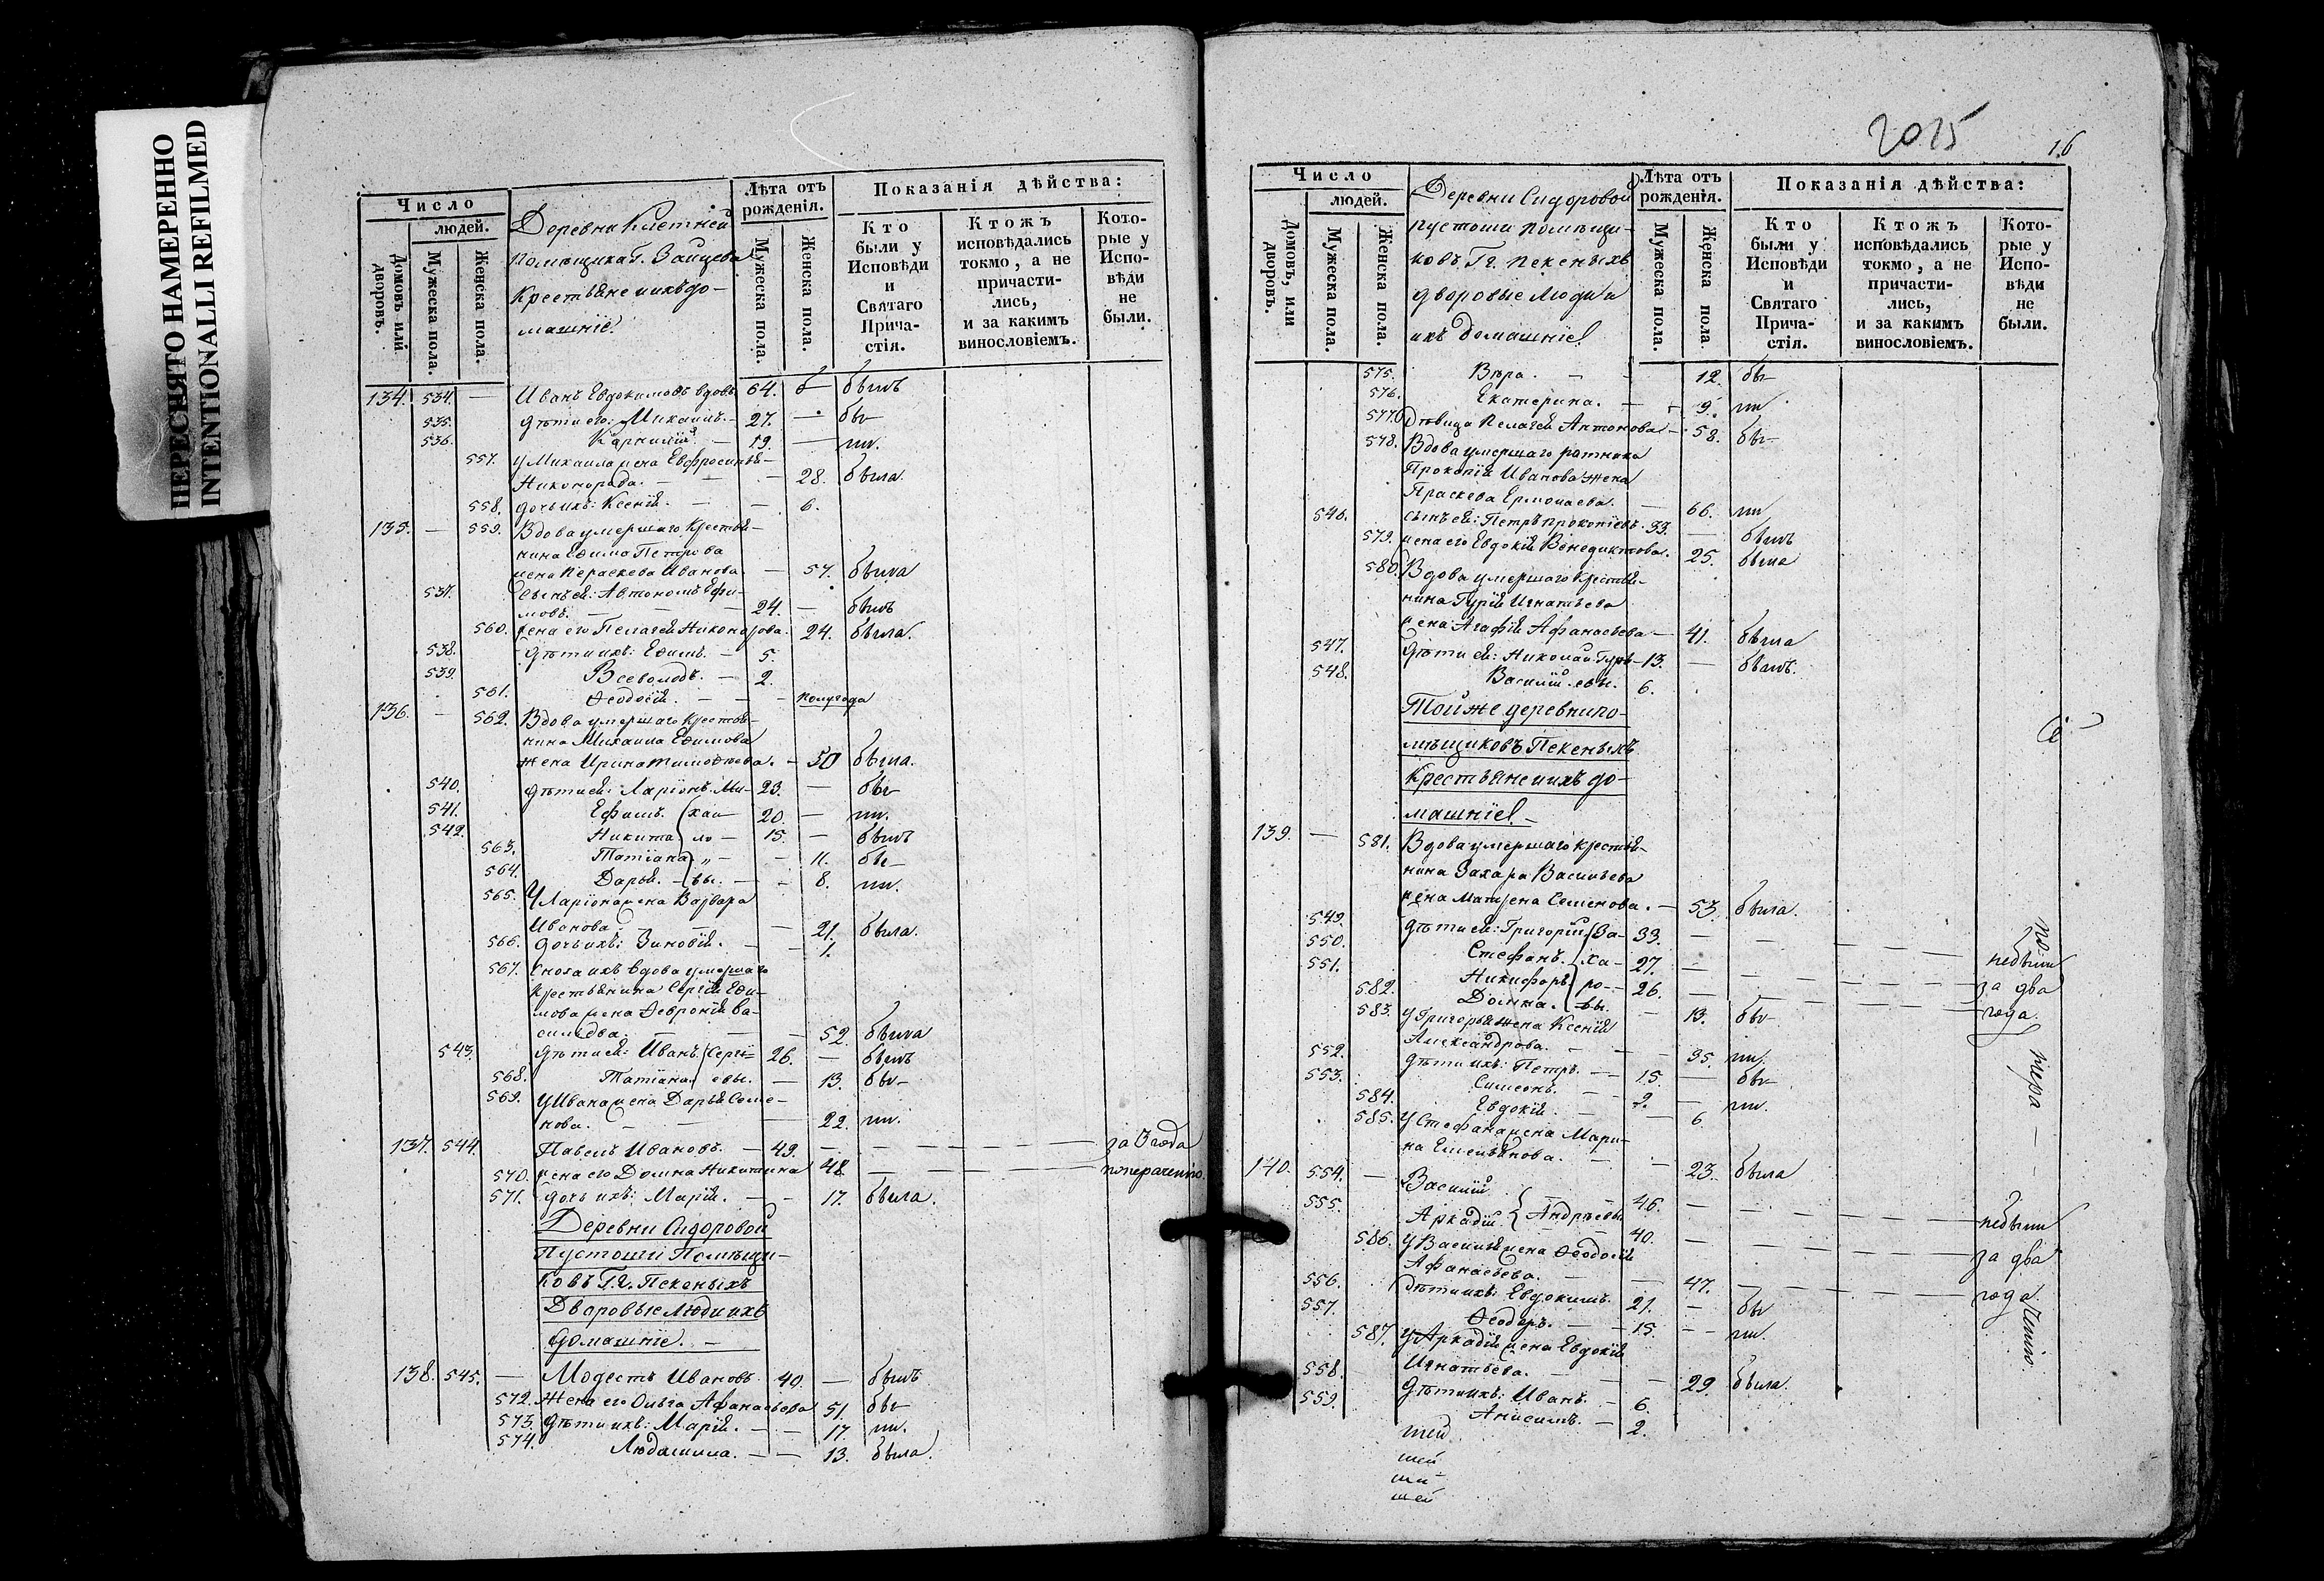 ПЕРЕСНЯТО НАМЕРЕННО
INTENTIONALLI REFILMED
Число
людей.
Домовъ или дворовъ.
Мужеска пола.
Женска пола.
Деревни Клетней
Помѣщика Г. Зайцева
Крестьяне и ихъ до-
машніе
Лѣта отъ рожденія.
Мужеска пола.
Женска пола.
Показанія дѣйства:
Кто были у Исповѣди и Святаго Прича- стія.
Ктожъ исповѣдались токмо, а не причасти- лись, и за какимъ винословіемъ.
Кото- рые у Испо- вѣди не были.
134. 534. — Иванъ Евдокимовъ вдовъ 64. былъ
535. дѣти его: Михаилъ. — 27. — бы-
536. Карнилій — 19. — ли.
557. у Михаила жена Евфросинья
Никонорова. — — — 28. была.
558. дочь ихъ: Ксенія. — — 6.
135. — 559. Вдова умершаго крестья-
нина Ефима Петрова
жена Параскева Иванова. — 57. была
537. сынъ ея: Автономъ Ефи-
мовъ. — — — 24. — былъ
560. жена его Пелагея Никонорова. 24. была.
538. дѣти ихъ: Ефимъ. — 5.
539. Всеволодъ. — 2.
561. Ѳеодосія. — — — полугода
136. — 562. Вдова умершаго крестья-
нина Михаила Ефимова
жена Ирина Тимоѳеева. — 50 была.
540. дѣти ея: Ларіонъ. Ми- 23. — бы-
541. Ефимъ. хаи- 20. — ли.
542. Никита ло- 15. — былъ
563. Татіана „ — — 11. бы-
564. Дарья. вы. — — 8. ли.
565. У Ларіона жена Варвара
Иванова — — — 21. была.
566. дочь ихъ: Зиновія. — — 1.
567. Сноха ихъ вдова умершаго
крестьянина Сергія Ефи-
мова жена Ѳевронія Ва-
сильева. — — — 52. была
543. дѣти ея: Иванъ. Сергѣ- 26. — былъ
568. Татіана. евы. — 13. бы-
569. у Ивана жена Дарья Семе-
нова. — — — 22. ли.
137. 544. Павелъ Ивановъ. — 49. — — — — за 3 года
570. жена его Домна Никитина 48 — — — по нераченію.
571. дочь ихъ: Марія. — — 17. была.
Деревни Сидоровой
Пустоши Помѣщи-
ковъ Г.г. Пекеныхъ
Дворовые люди и ихъ
домашніе. —
138. 545. — Модестъ Ивановъ 40. — былъ
572. Жена его Ольга Афанасьева 51. бы-
573. дѣти ихъ: Марія. — — 17. ли.
574. Людмила. — — 13. была.
2015
16
Число
людей.
Домовъ, или дворовъ.
Мужеска пола.
Женска пола.
Деревни Сидоровой
пустоши помѣщи-
ковъ Гг. Пекеныхъ
дворовые люди и
ихъ домашніе
Лѣта отъ рожденія.
Мужеска пола.
Женска пола.
Показанія дѣйства:
Кто были у Исповѣди и Святаго Прича- стія.
Ктожъ исповѣдались токмо, а не причасти- лись, и за какимъ винословіемъ.
Кото- рые у Испо- вѣди не были.
575. Вѣра. — — 12. бы-
576. Екатерина. — — 9. ли.
577. Дѣвица Пелагея Антонова — 58. бы-
578. Вдова умершаго ратника
Прокопія Иванова жена
Праскева Ермолаева. — 66. ли.
546. сынъ ея: Петръ Прокопіевъ. 33. — былъ
579. жена его Евдокія Венедиктова. 25. была
580. Вдова умершаго крестья-
нина Гурія Игнатьева
жена Агафія Афанасьева — 41. была
547. дѣти ея: Николай Гурь- 13. — былъ.
548. Василій евы. 6.
Той же деревни по-
мѣщиковъ Пекеныхъ
крестьяне и ихъ до-
машніе. —
139. — 581. Вдова умершаго крестья-
нина Захара Васильева
жена Матрена Семенова. — 53. была.
549. дѣти ея: Григорій За- 33. — — —
550. Стефанъ. ха- 27. — — — не были
551. Никифоръ ро- 26. — — — за два
582. Домна. вы. — 13. бы- года.
583. у Григорья жена Ксенія
Александрова. — — — 35. ли.
552. дѣти ихъ: Петръ. — — 15. — бы-
553. Симеонъ. — — 9. — ли.
584. Евдокія. — — 6.
585. У Стефана жена Мари-
на Емельянова. — — 23. была
140. 554. — Василій
555. Аркадій. Андреевы 46. — — — не были
586. у Василья жена Ѳеодосія 40. — — — за два
Афанасьева. — — 47. — — — года
556. дѣти ихъ: Евдокимъ. 21. — бы
557. Ѳеодоръ. — — 15. — ли.
587. у Аркадія жена Евдокія
Игнатьева. — — — 29. была.
558. дѣти ихъ: Иванъ. — 6.
559. Анисимъ. — 2.
по нера — ченію
шей
шей